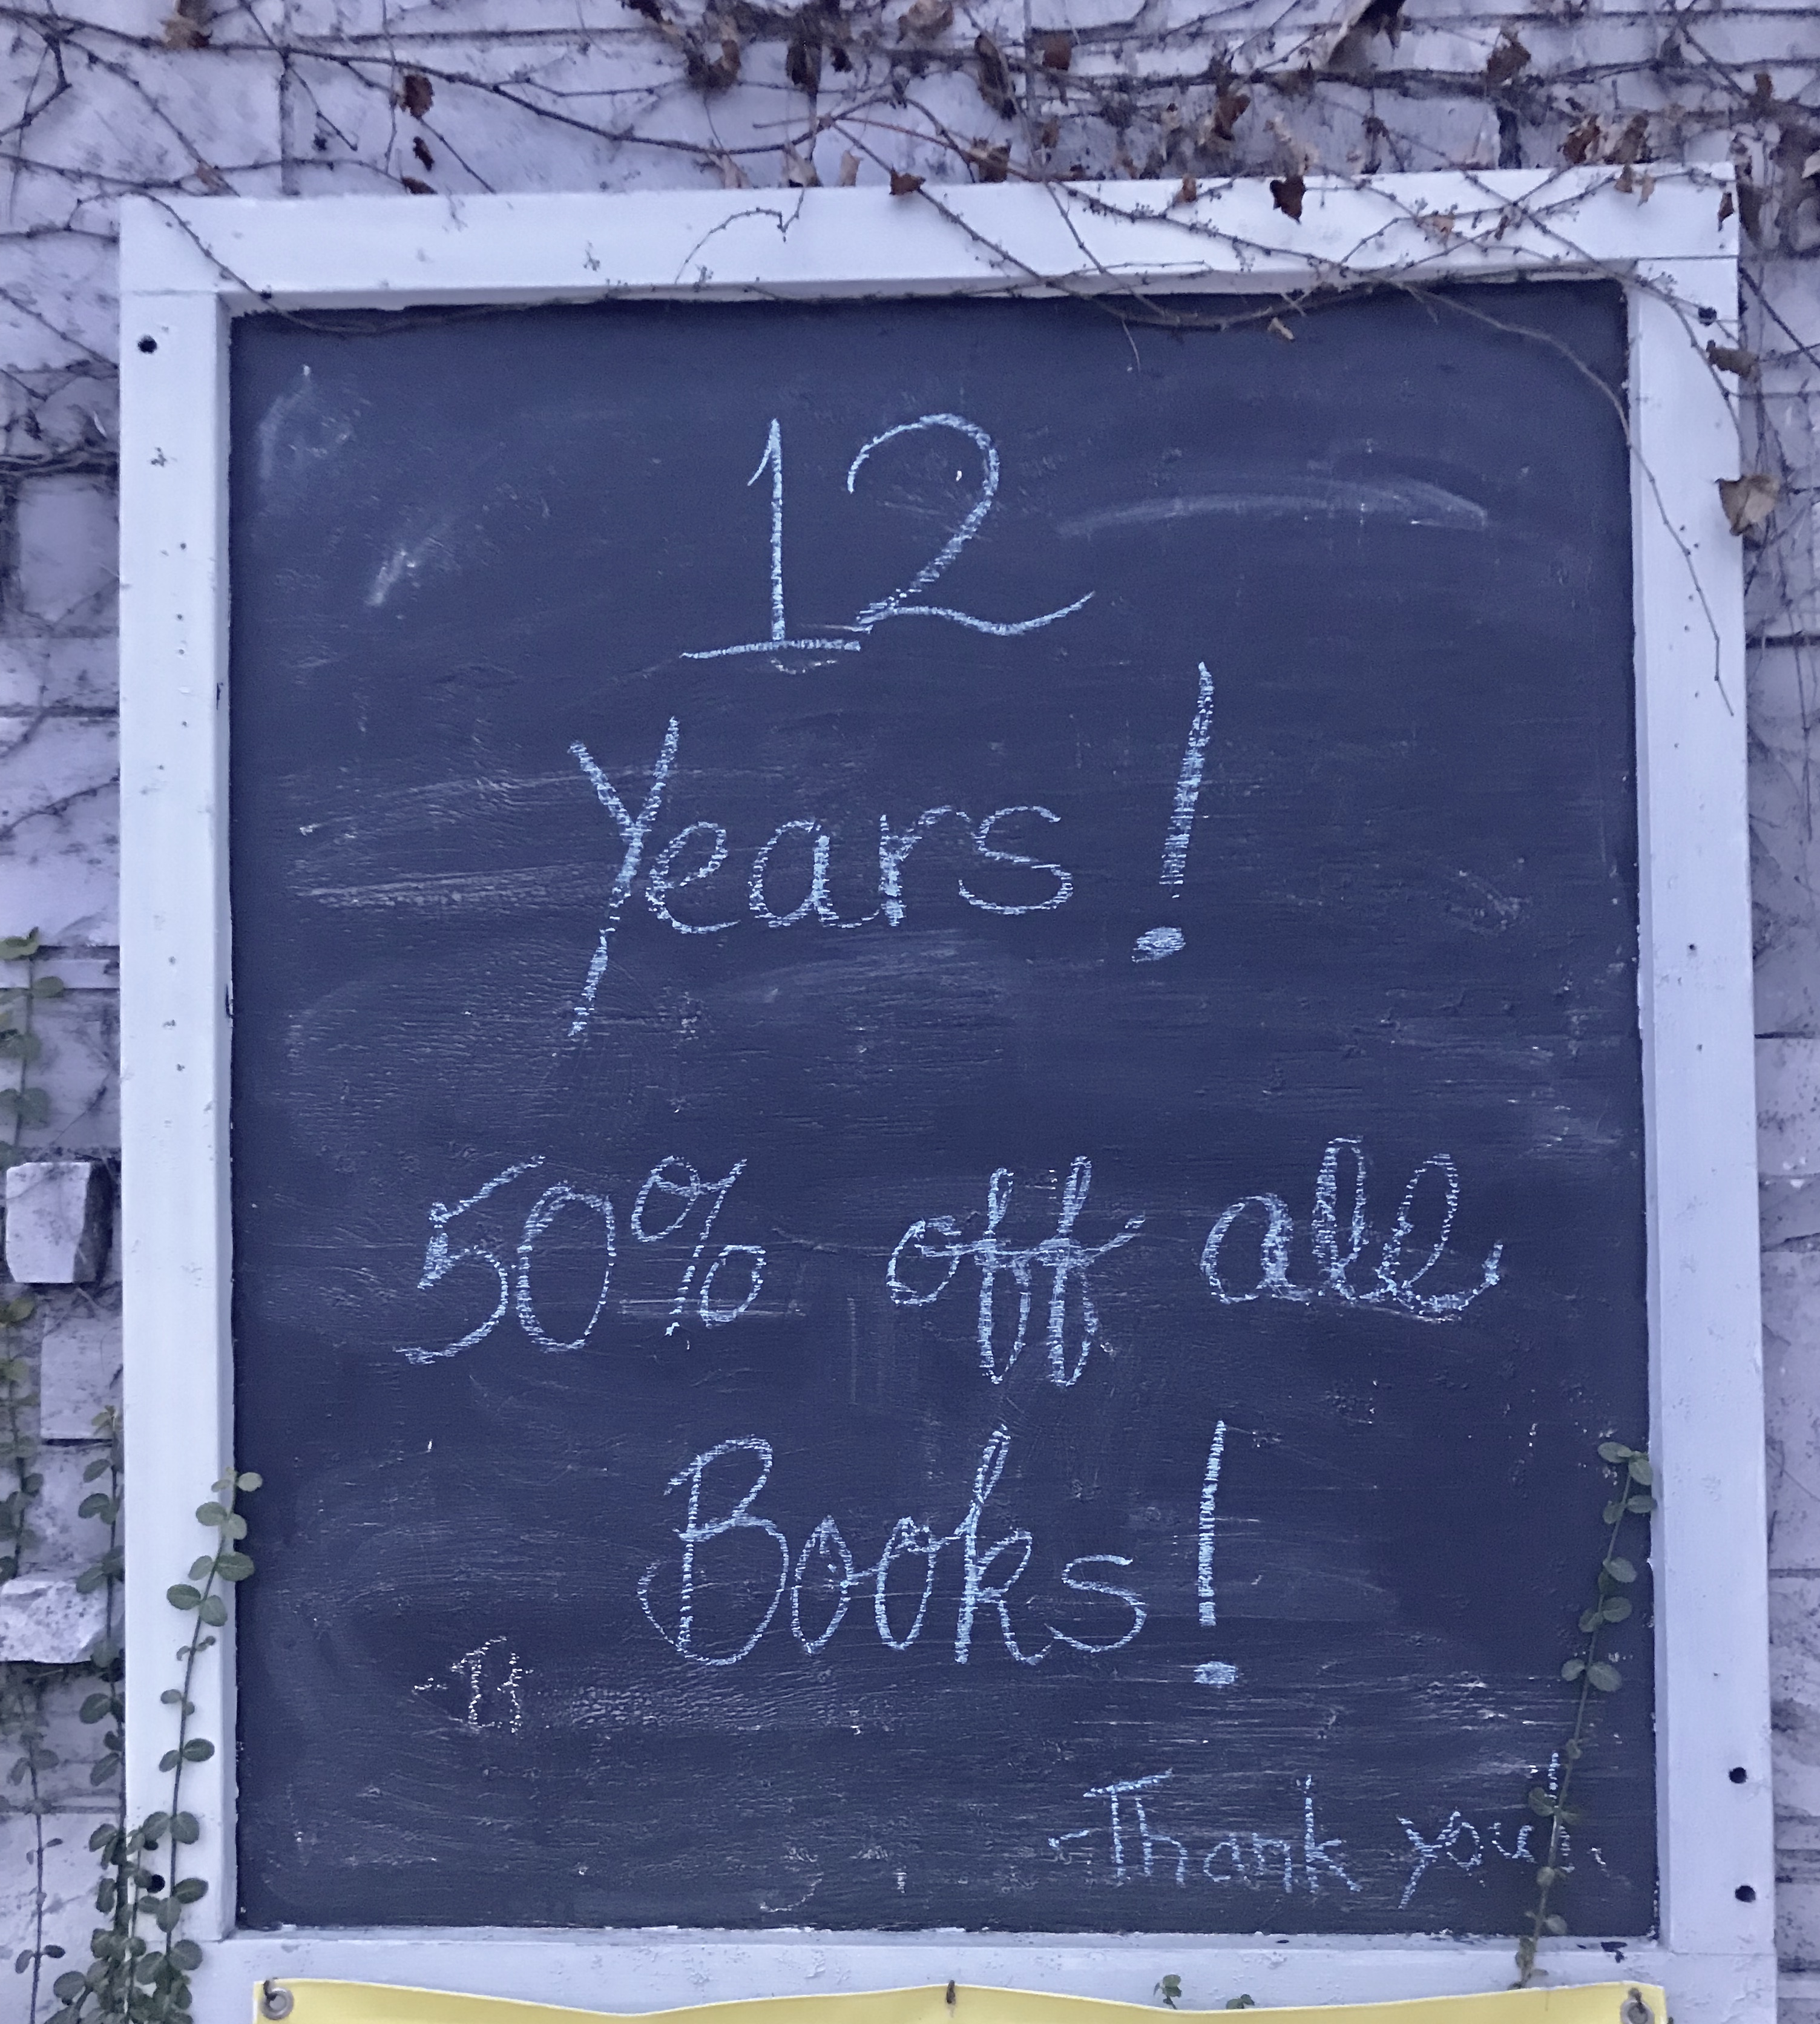 12
Years!
50% off all
Books!
-Thank you!